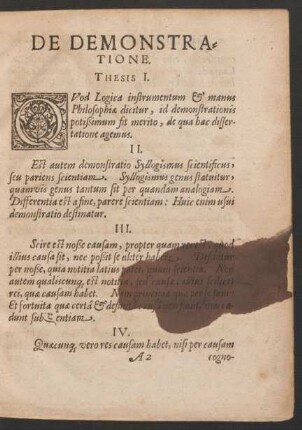 DE DEMONSTRA-
TIONE.
THESIS I.
QVod Logica instrumentum & manus
Philosophiæ dicitur, id demonstrationis
potissimum fit merito, de qua hac disser-
tatione agemus.
II.
Est autem demonstratio Syllogismus scientificus,
seu pariens scientiam. Syllogismus genus statuitur,
quamvis genus tantum sit per quandam analogiam.
Differentia est a fine, parere scientiam: Huic enim usui
demonstratio destinatur.
III.
Scire est nosse causam, propter quam res est, quod
illius causa sit, nec possit se aliter habere.
per nosse, quia notitia latius patet, quam scientia.
autem qualiscunq, est notitia, sed
rei, quæ causam habet.
Et fortuita quæ certâ &
dunt sub Scientiam.
IV.
Quæcunq, vero res causam habet, nisi per causam
A 2 cogno-